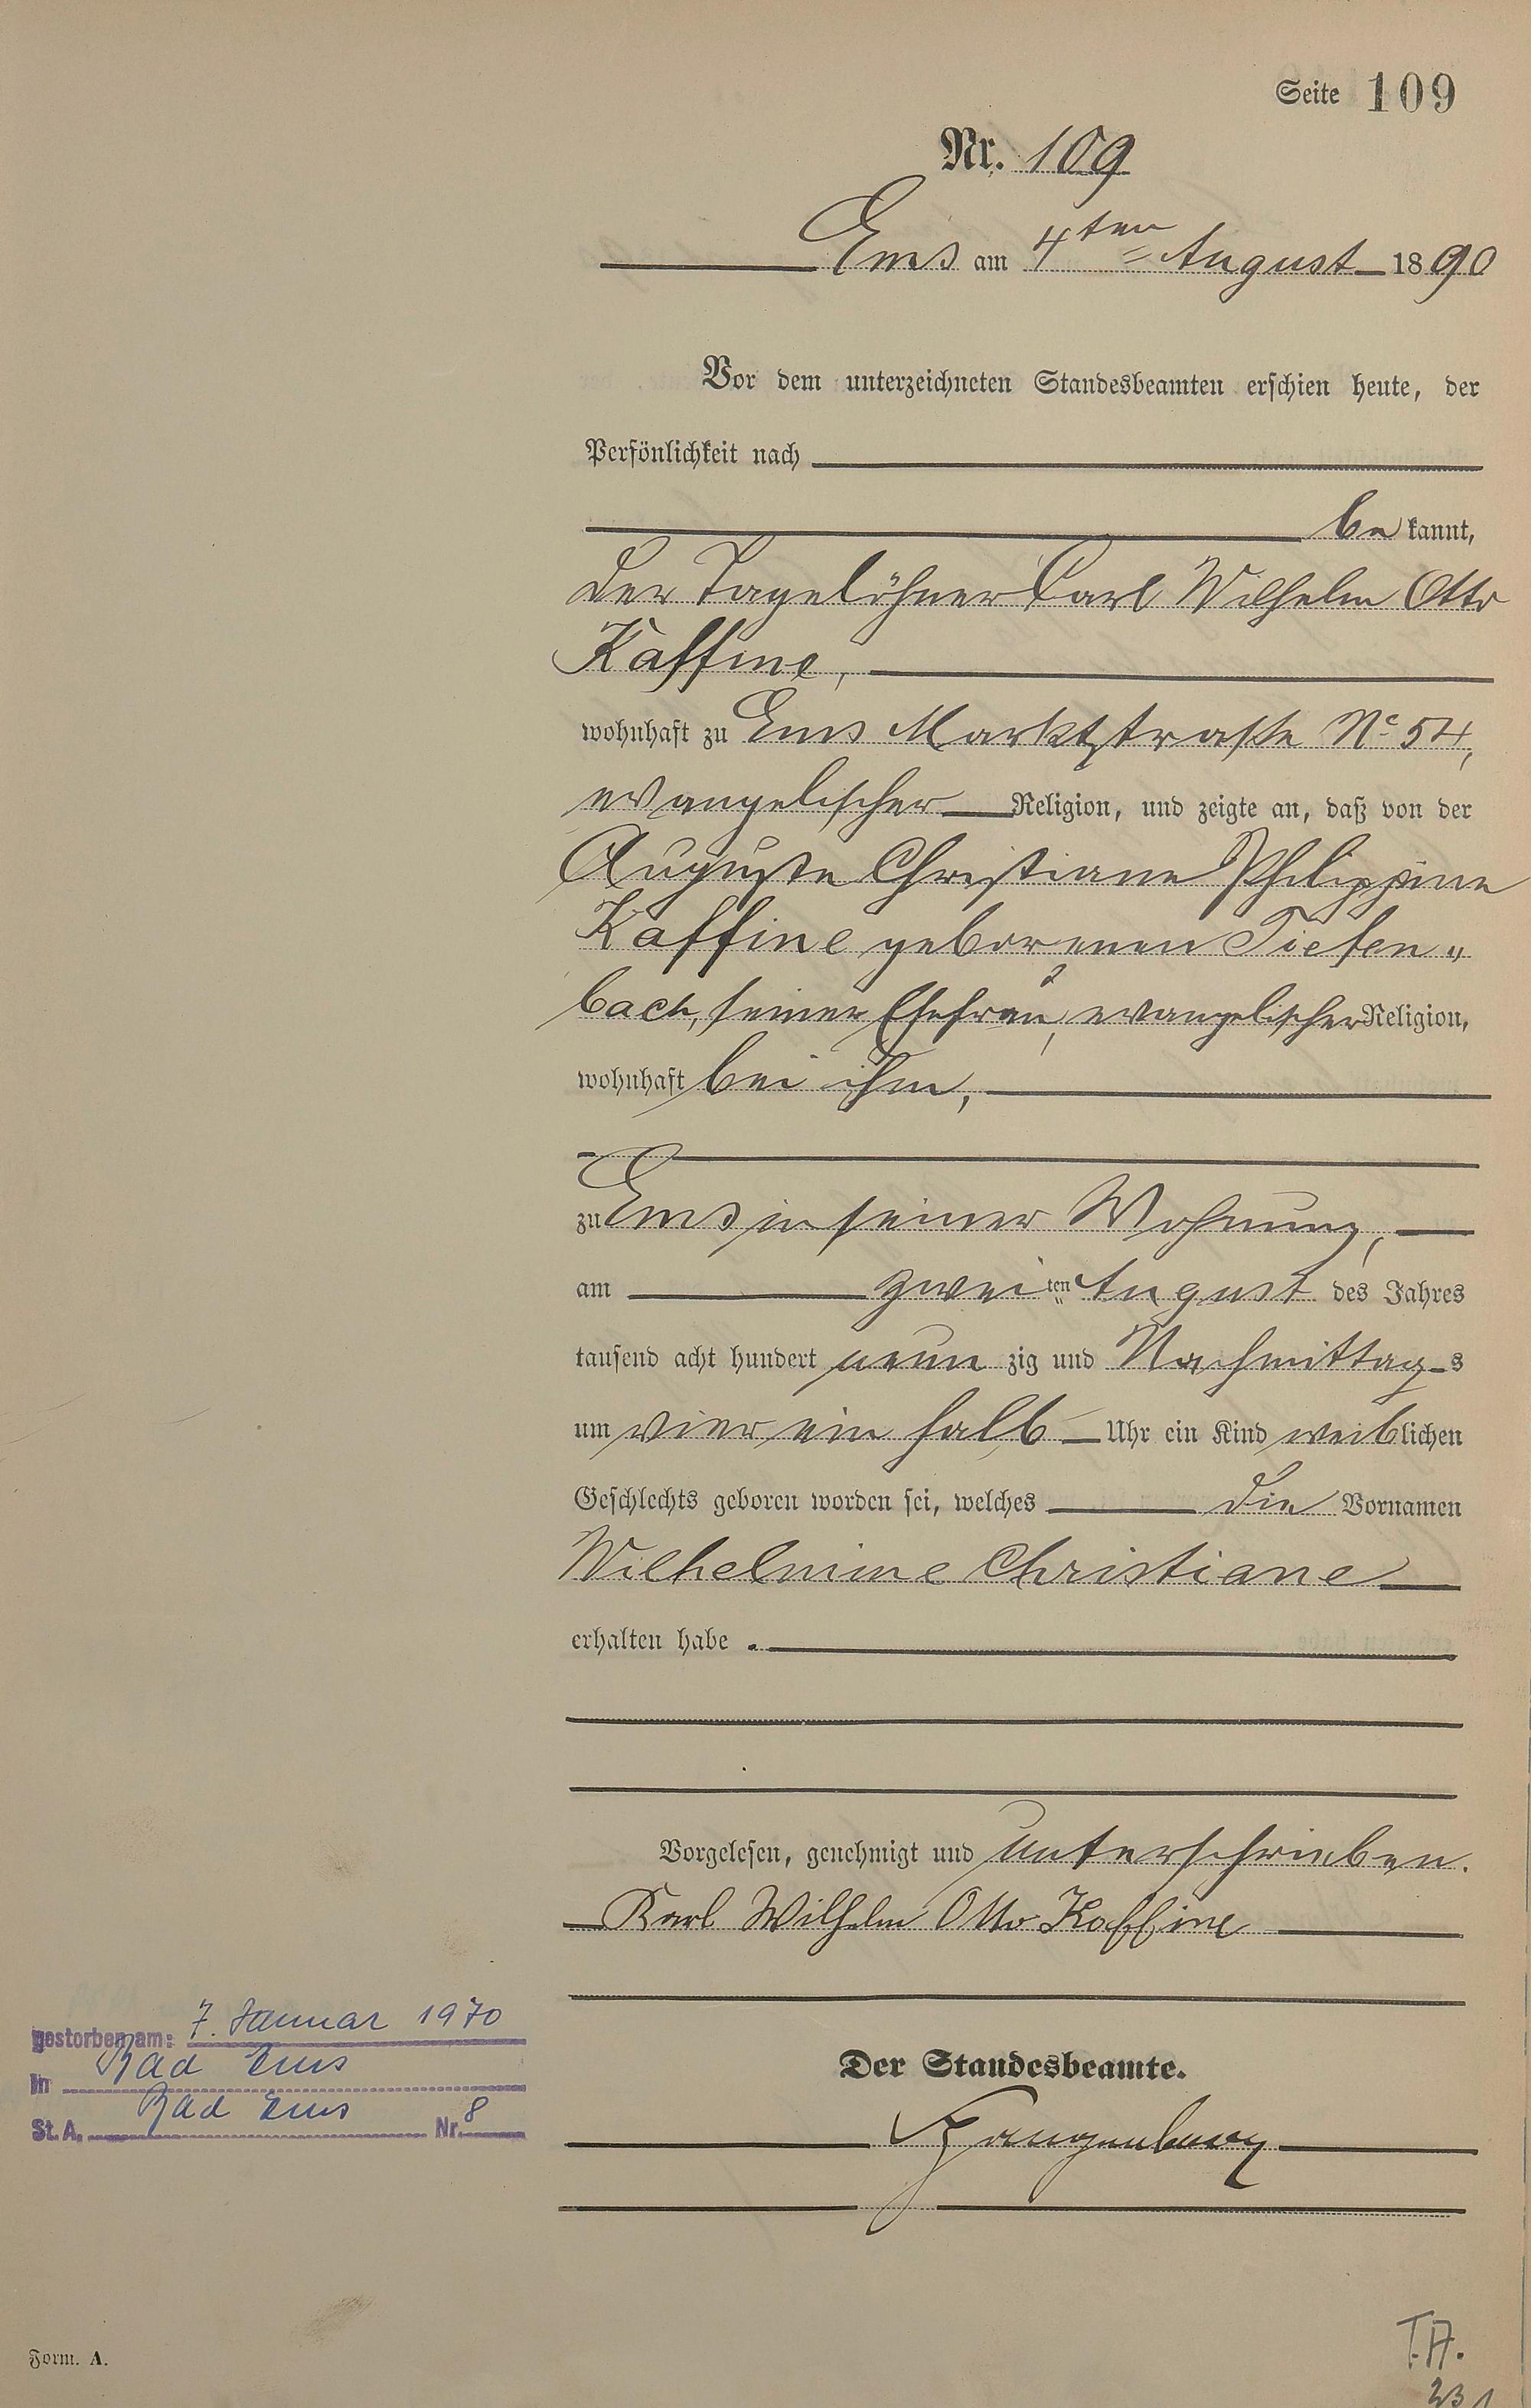 Seite 109
Nr. 109
Ems am 4ten August 1890
Vor dem unterzeichneten Standesbeamten erschien heute, der
Persönlichkeit nach
bekannt,
der Tagelöhner Carl Wilhelm Otto
Kaffine,
wohnhaft zu Ems Marktstraße No 54,
evangelischer Religion, und zeigte an, daß von der
Auguste Christiane Philippine
Kaffine geborenen Tiefen„
bach, seiner Ehefrau, evangelischer Religion,
wohnhaft bei ihm,
zu Ems in seiner Wohnung,
am zweiten August des Jahres
tausend acht hundert neunzig und Nachmittags
um vier ein halb Uhr ein Kind weiblichen
Geschlechts geboren worden sei, welches die Vornamen
Wilhelmine Christiane
erhalten habe.
Vorgelesen, genehmigt und unterschrieben.
Karl Wilhelm Otto Kaffine
gestorben am: 7. Januar 1970
in Bad Ems
St. A. Bad Ems Nr. 8
Der Standesbeamte.
Form. A.
T.A.